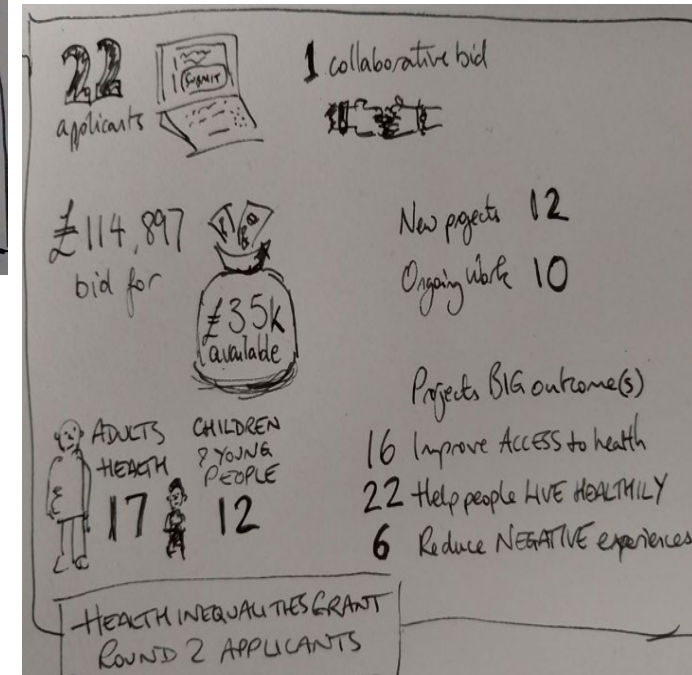 22
applicants
SUBMIT
1 collaborative bid
£114,897
bid for
£35k
available
New projects 12
Ongoing work 10
ADULTS
HEALTH
17
CHILDREN
& YOUNG
PEOPLE
12
Projects BIG outcome(s)
16 Improve ACCESS to health
22 Help people LIVE HEALTHILY
6 Reduce NEGATIVE experiences
HEALTH INEQUALITIES GRANT
ROUND 2 APPLICANTS